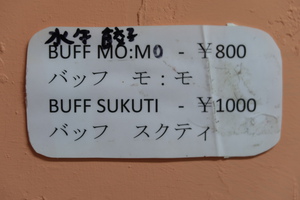 水牛 餃子
BUFF MO:MO - ¥800
バッフ モ:モ
BUFF SUKUTI - ¥1000
バッフ スクティ